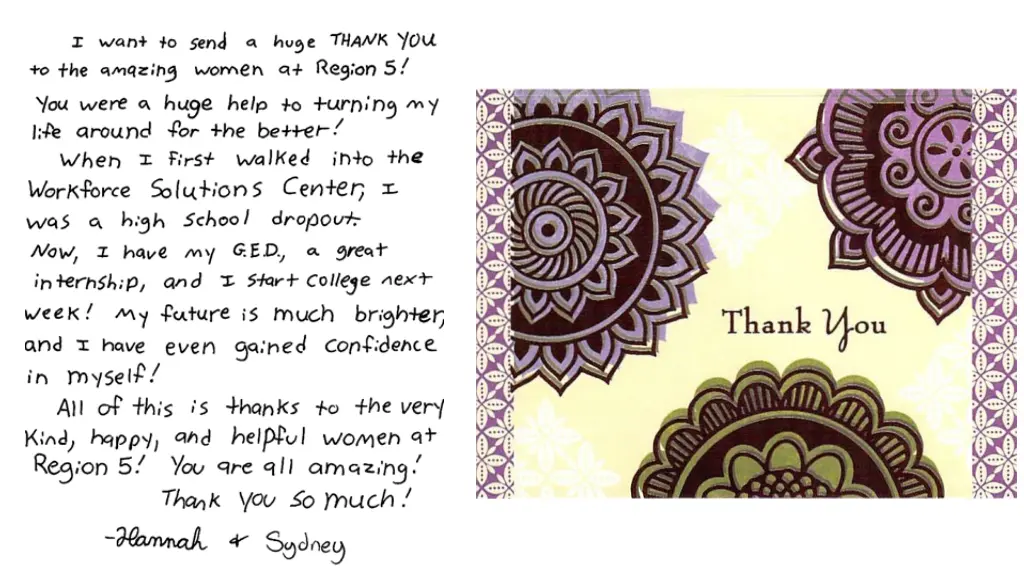 I want to send a huge THANK YOU
to the amazing women at Region 5!
You were a huge help to turning my
life around for the better!
When I first walked into the
Workforce Solutions Center, I
was a high school dropout.
Now, I have my G.E.D., a great
internship, and I start college next
week! My future is much brighter,
and I have even gained confidence
in myself!
All of this is thanks to the very
kind, happy, and helpful women at
Region 5! You are all amazing!
Thank you so much!
-Hannah & Sydney
Thank You